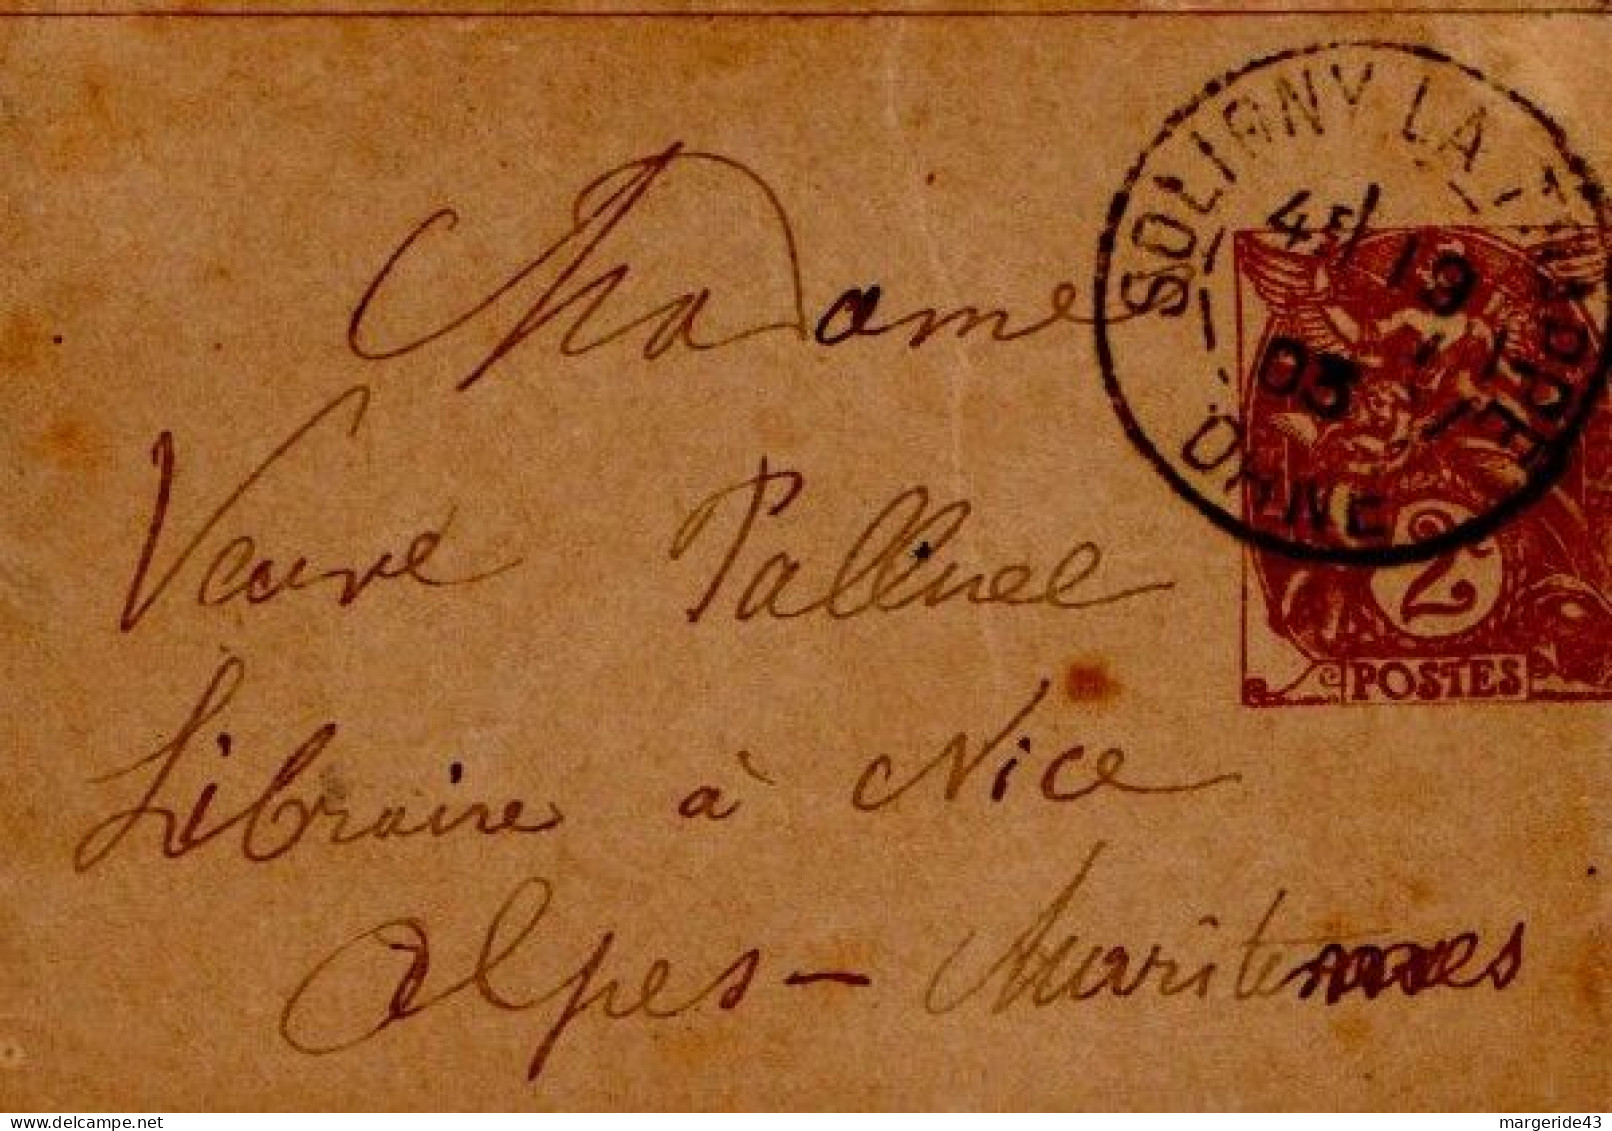 SOLIGNY LA TRAPPE
4E/19
03
ORNE
2
POSTES
Madame
Veuve Pallluel
Libraire à Nice
Alpes - Maritimes
www.delcampe.net
margeride43